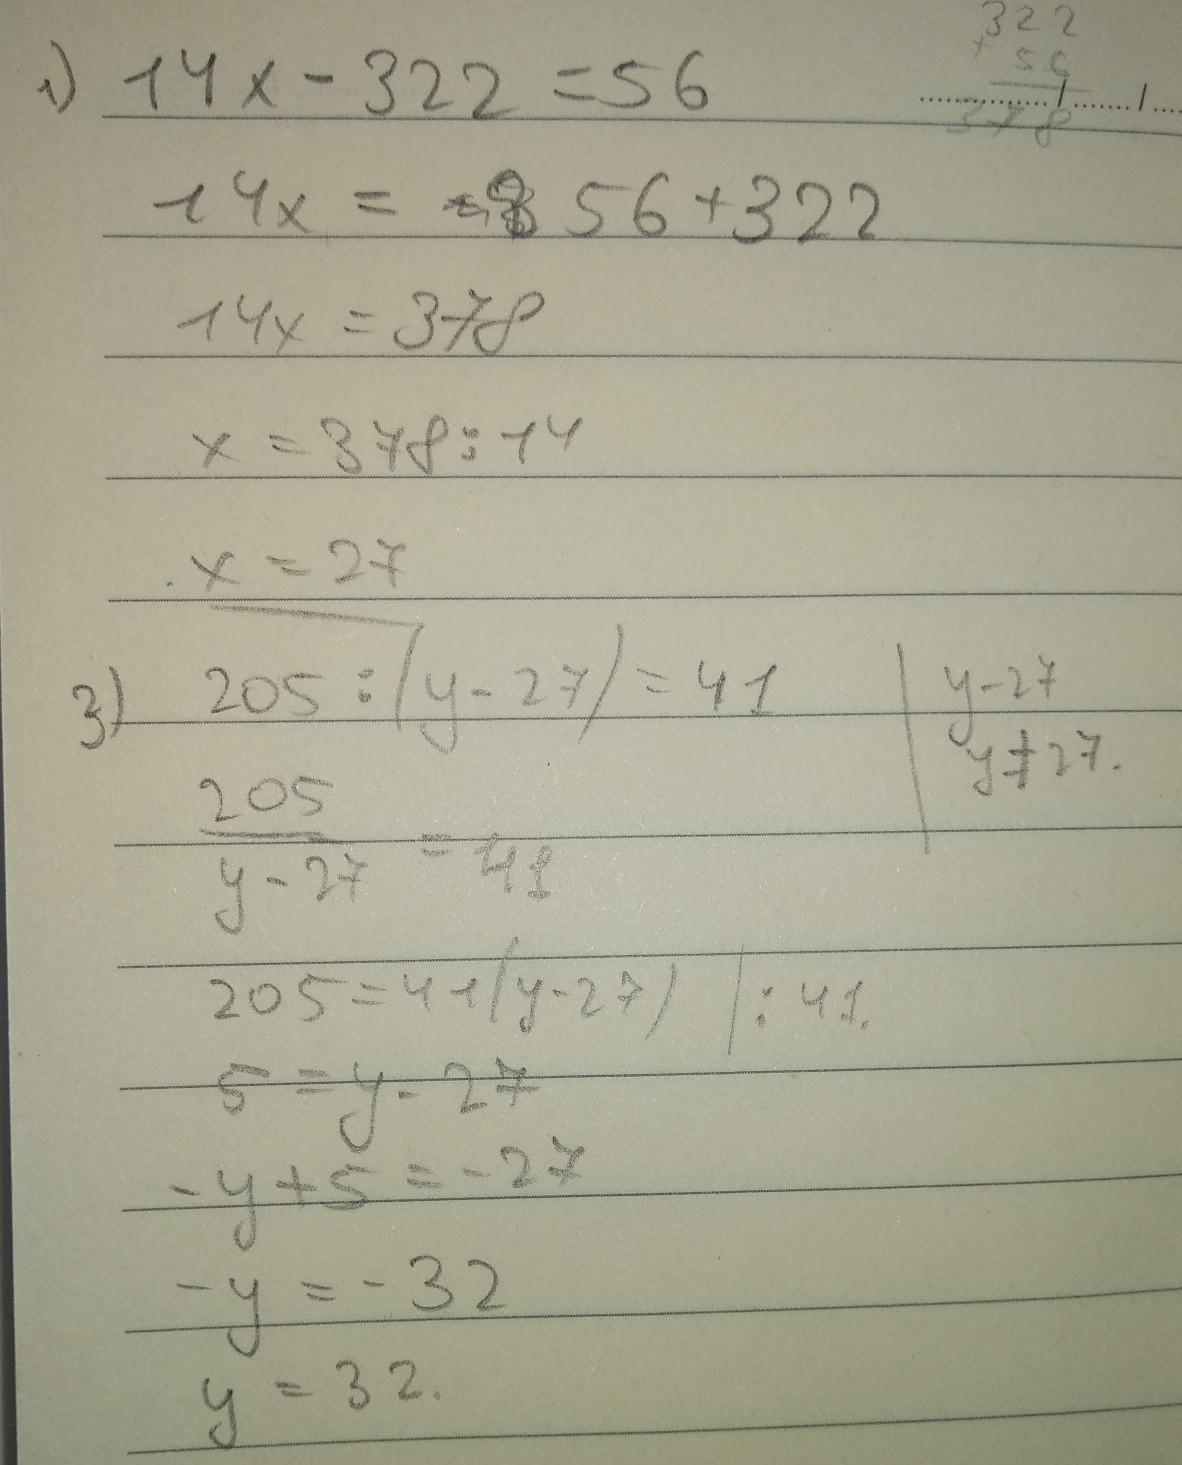 1) 14x - 322 = 56
322
+ 56
378
14x = 56 + 322
14x = 378
x = 378 : 14
x = 27
3) 205 : (y - 27) = 41 | y - 27
y ≠ 27.
205
y - 27 = 41
205 = 41(y - 27) | : 41.
5 = y - 27
-y + 5 = -27
-y = -32
y = 32.